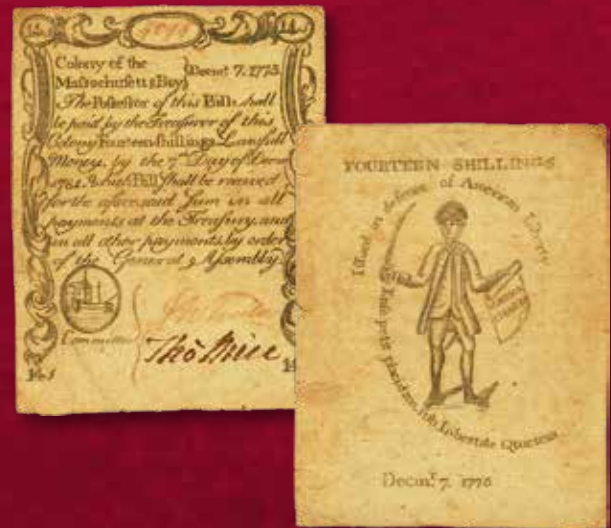 14s 14s
Colony of the
Massachusetts Bay} Decemr 7. 1775
The Possessor of this Bill shall
be paid by the Treasurer of this
Colony Fourteen shillings Lawfull
Money, by the 7th Day of Decmr
which Bill shall be received
for the aforesaid Sum in all
payments at the Treasury, and
in all other payments by order
of the General Assembly.
Committee
14s
FOURTEEN SHILLINGS
Issued in defence of American Liberty
Ense petit placidam, sub Libertate Quietem
Decmr 7. 1775